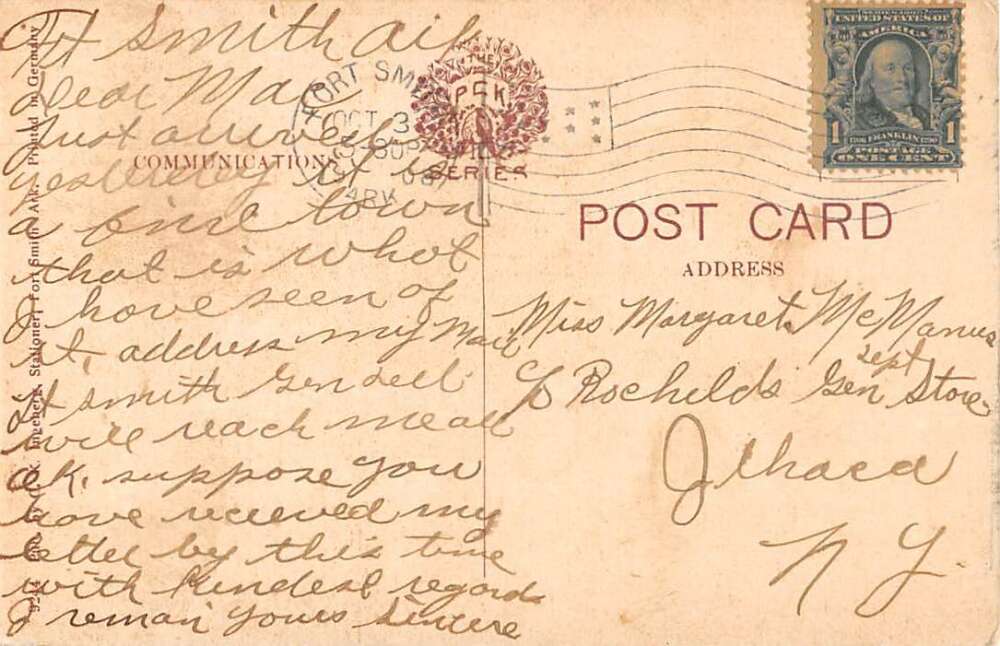 Ft Smith Ark
Dear Mae
Just arrived
yesterday it is
a fine town
that is what
I have seen of
it, address my Mail
Ft Smith Gen deli
will reach me all
o.k. suppose you
have recieved my
letter by this time
with kindest regards
I remain yours sincere
COMMUNICATIONS
FORT SMITH
OCT 3
ARK.
THE
P C K
SERIES
SERIES 1902
UNITED STATES OF
AMERICA
1 FRANKLIN 1
POSTAGE
ONE CENT
POST CARD
ADDRESS
Miss Margaret McManus
c/o Rochilds Gen Store
Dept
Ithaca
N Y.
Stationer, Fort Smith Ark. Printed in Germany